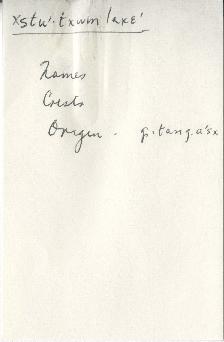 xstu'·txwm lakɛ'
Names
Crests
Origin · g·tang.a'sx